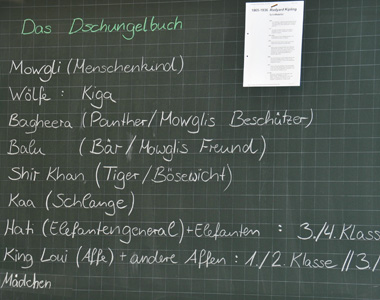 Das Dschungelbuch
1865-1936 Rudyard Kipling
Mowgli (Menschenkind)
Wölfe : Kiga
Bagheera (Panther/Mowglis Beschützer)
Balu (Bär/Mowglis Freund)
Shir Khan (Tiger/Bösewicht)
Kaa (Schlange)
Hati (Elefantengeneral)+Elefanten : 3./4. Klass
King Loui (Affe) + andere Affen : 1./2. Klasse // 3/
Mädchen